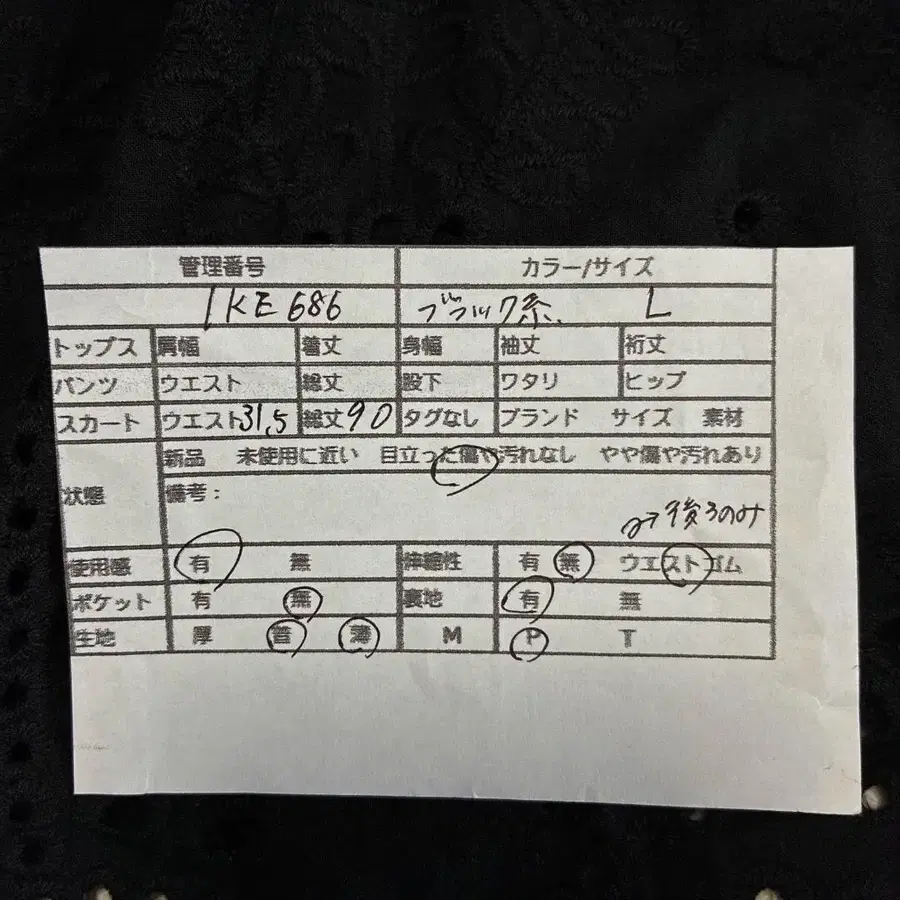 管理番号 カラー/サイズ
IKE686 ブラック系. L
トップス 肩幅 着丈 身幅 袖丈 裄丈
パンツ ウエスト 総丈 股下 ワタリ ヒップ
スカート ウエスト31,5 総丈90 タグなし ブランド サイズ 素材
状態 新品 未使用に近い 目立った傷や汚れなし やや傷や汚れあり
備考：
後ろのみ
使用感 有 無 伸縮性 有 無 ウエストゴム
ポケット 有 無 裏地 有 無
生地 厚 普 薄 M P T